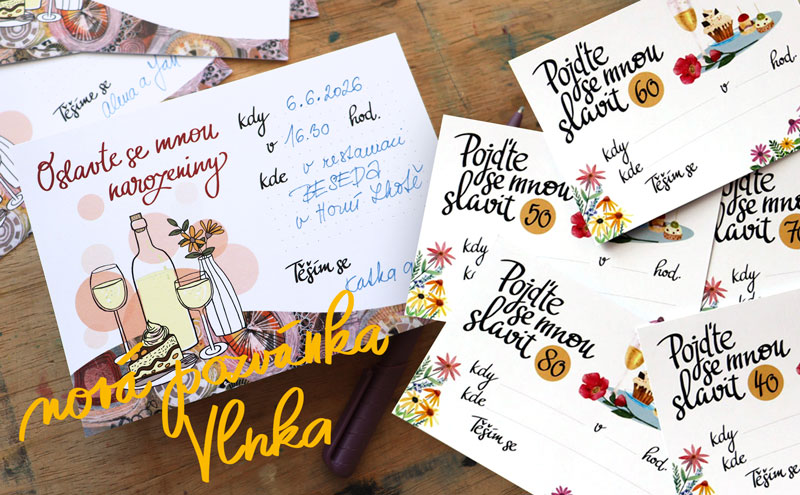 Těšíme se
Alena a Jan
Oslavte se mnou
narozeniny
kdy 6.6.2026
v 16.30 hod.
kde v restauraci
BESEDA
v Horní Lhotě
Těším se
Katka
nová pozvánka
Vlnka
Pojďte
se mnou
slavit 60
kdy v hod.
kde
Těším se
Pojďte
se mnou
slavit 50
kdy
Pojďte
se mnou
slavit
kdy
kde
Pojďte
se mnou
slavit 80
kdy v hod.
kde
Těším se
Pojďte
se mnou
slavit 40
kdy
kde
Těším se